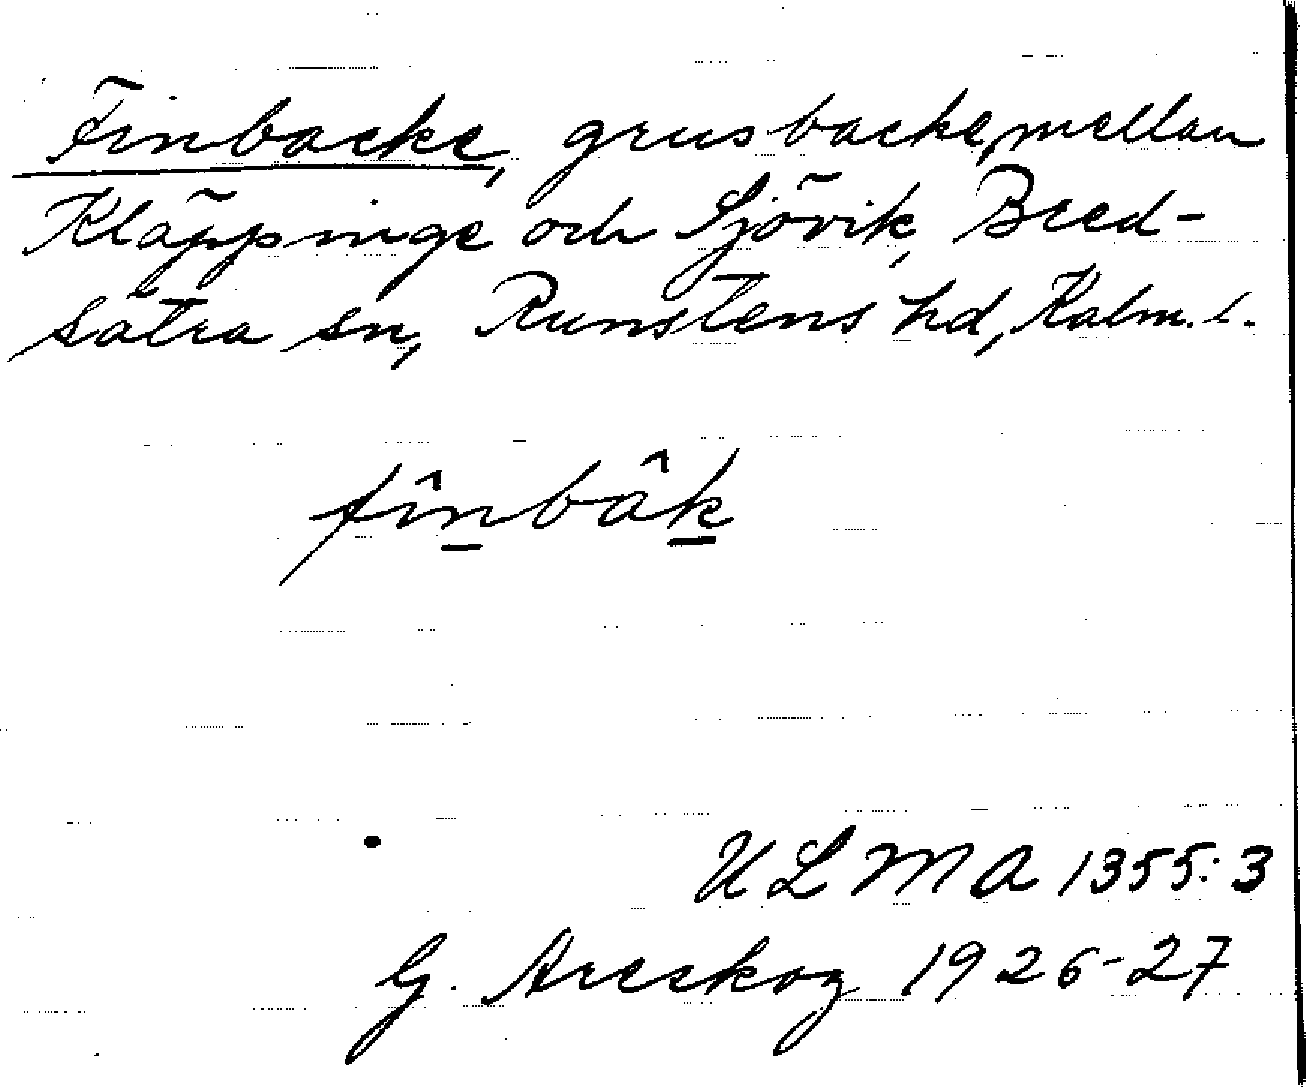 Finbacke, grusbacke, mellan
Kläppinge och Sjövik, Bred-
sätra sn, Runstens hd, Kalm. l.
fîn̲bâk̲
ULMA 1355:3
G. Areskog 1926-27